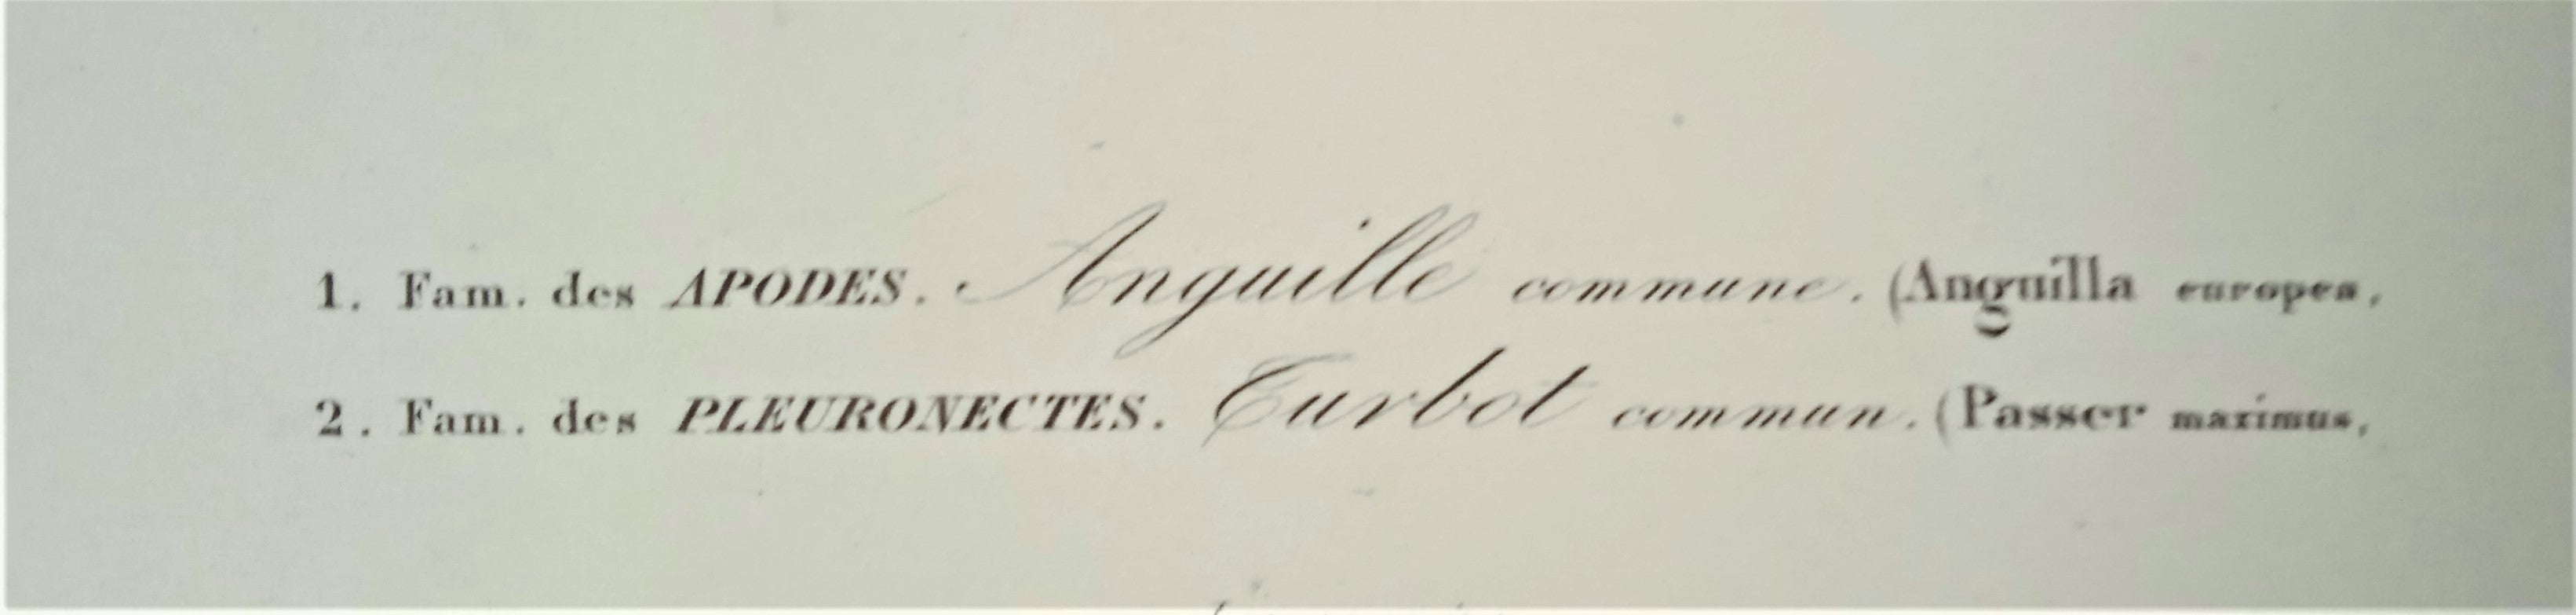 1. Fam. des APODES. Anguille commune. (Anguilla europea,
2. Fam. des PLEURONECTES. Turbot commun. (Passer maximus,